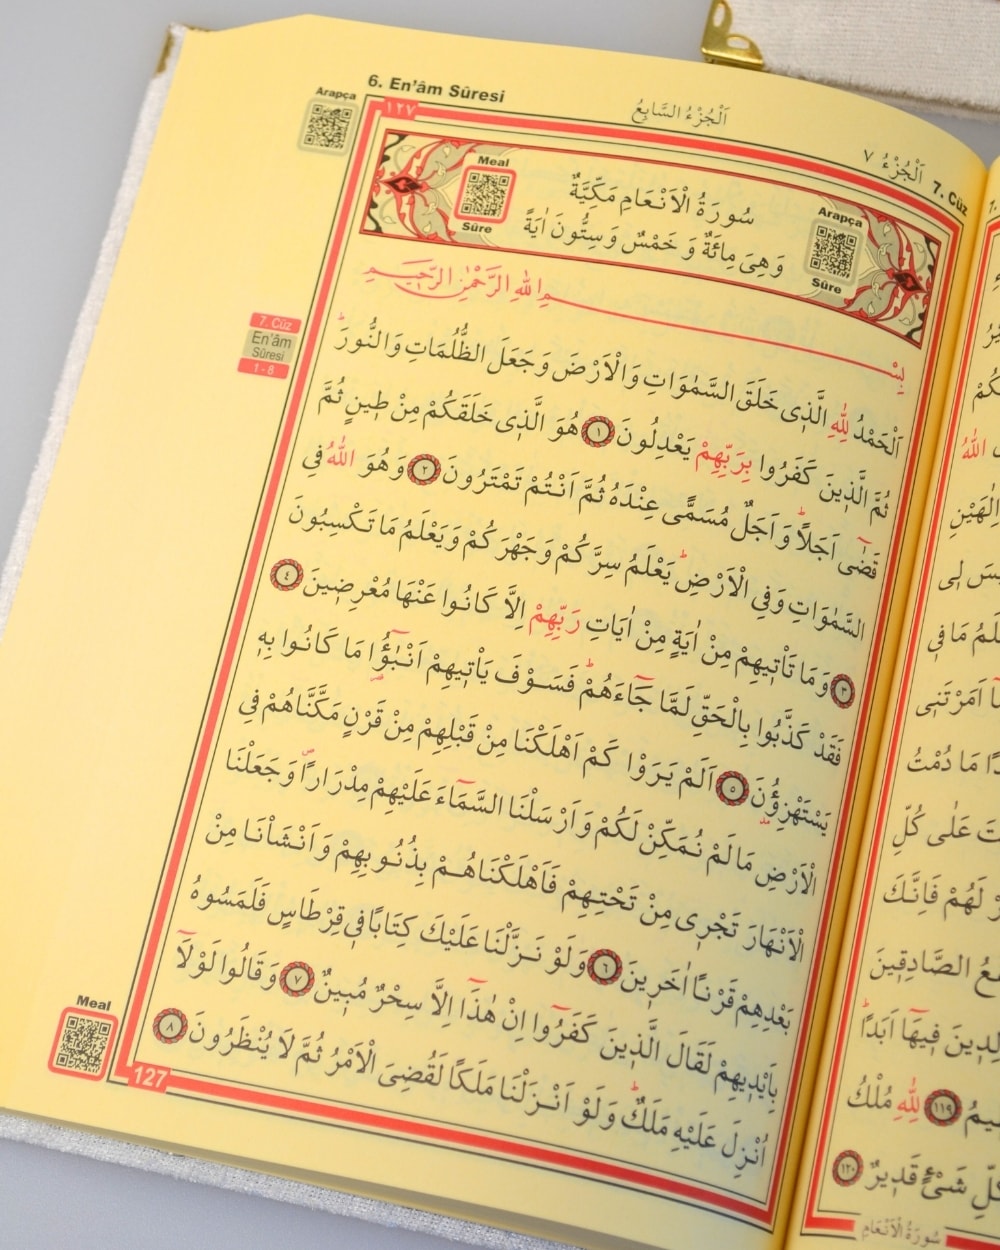 6. En'âm Sûresi
اَلْجُزْءُ السَّابِعُ
اَلْجُزْءُ ٧
7. Cüz
Arapça
١٢٧
Meal
Sûre
سُورَةُ الْاَنْعَامِ مَكِّيَّةٌ
وَهِىَ مِائَةٌ وَ خَمْسٌ وَ سِتُّونَ اٰيَةً
Arapça
Sûre
بِسْمِ اللهِ الرَّحْمٰنِ الرَّحِيمِ
7. Cüz
En'âm
Sûresi
1 - 8
اَلْحَمْدُ لِلّٰهِ الَّذِى خَلَقَ السَّمٰوَاتِ وَالْاَرْضَ وَجَعَلَ الظُّلُمَاتِ وَالنُّورَ
ثُمَّ الَّذِينَ كَفَرُوا بِرَبِّهِمْ يَعْدِلُونَ ١ هُوَ الَّذِى خَلَقَكُمْ مِنْ طِينٍ ثُمَّ
قَضٰٓى اَجَلًا وَاَجَلٌ مُسَمًّى عِنْدَهُ ثُمَّ اَنْتُمْ تَمْتَرُونَ ٢ وَهُوَ اللهُ فِى
السَّمٰوَاتِ وَفِى الْاَرْضِ يَعْلَمُ سِرَّكُمْ وَجَهْرَكُمْ وَيَعْلَمُ مَا تَكْسِبُونَ
٣ وَمَا تَأْتِيهِمْ مِنْ اٰيَةٍ مِنْ اٰيَاتِ رَبِّهِمْ اِلَّا كَانُوا عَنْهَا مُعْرِضِينَ ٤
فَقَدْ كَذَّبُوا بِالْحَقِّ لَمَّا جَٓاءَهُمْ فَسَوْفَ يَأْتِيهِمْ اَنْبٰٓؤُا مَا كَانُوا بِهِ
يَسْتَهْزِؤُنَ ٥ اَلَمْ يَرَوْا كَمْ اَهْلَكْنَا مِنْ قَبْلِهِمْ مِنْ قَرْنٍ مَكَّنَّاهُمْ فِى
الْاَرْضِ مَا لَمْ نُمَكِّنْ لَكُمْ وَاَرْسَلْنَا السَّمَٓاءَ عَلَيْهِمْ مِدْرَارًا وَجَعَلْنَا
الْاَنْهَارَ تَجْرِى مِنْ تَحْتِهِمْ فَاَهْلَكْنَاهُمْ بِذُنُوبِهِمْ وَاَنْشَاْنَا مِنْ
بَعْدِهِمْ قَرْنًا اٰخَرِينَ ٦ وَلَوْ نَزَّلْنَا عَلَيْكَ كِتَابًا فِى قِرْطَاسٍ فَلَمَسُوهُ
بِاَيْدِيهِمْ لَقَالَ الَّذِينَ كَفَرُٓوا اِنْ هٰذَٓا اِلَّا سِحْرٌ مُبِينٌ ٧ وَقَالُوا لَوْلَٓا
اُنْزِلَ عَلَيْهِ مَلَكٌ وَلَوْ اَنْزَلْنَا مَلَكًا لَقُضِىَ الْاَمْرُ ثُمَّ لَا يُنْظَرُونَ ٨
Meal
127
اللهُ
لَمُ مَا فِى
مَا اَمَرْتَنِى
مَا دُمْتُ
عَلٰى كُلِّ
لَهُمْ فَاِنَّكَ
الصَّادِقِينَ
فِيهَٓا اَبَدًا
١١٩ لِلّٰهِ مُلْكُ
شَىْءٍ قَدِيرٌ ١٢٠
سُورَةُ الْاَنْعَامِ